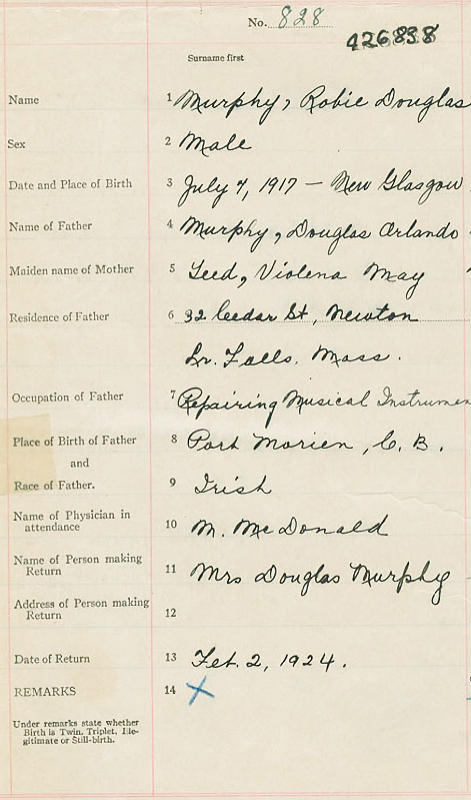 No. 828
426838
Surname first
Name 1 Murphy, Robie Douglas
Sex 2 Male
Date and Place of Birth 3 July 7, 1917 — New Glasgow
Name of Father 4 Murphy, Douglas Orlando
Maiden name of Mother 5 Leed, Violena May
Residence of Father 6 32 Cedar St, Newton
Lr. Falls, Mass.
Occupation of Father 7 Repairing Musical Instrumen
Place of Birth of Father 8 Port Morien, C. B.
and
Race of Father. 9 Irish
Name of Physician in
attendance 10 M. McDonald
Name of Person making
Return 11 Mrs Douglas Murphy
Address of Person making
Return 12
Date of Return 13 Feb. 2, 1924.
REMARKS 14 X
Under remarks state whether
Birth is Twin, Triplet, Ille-
gitimate or Still-birth.